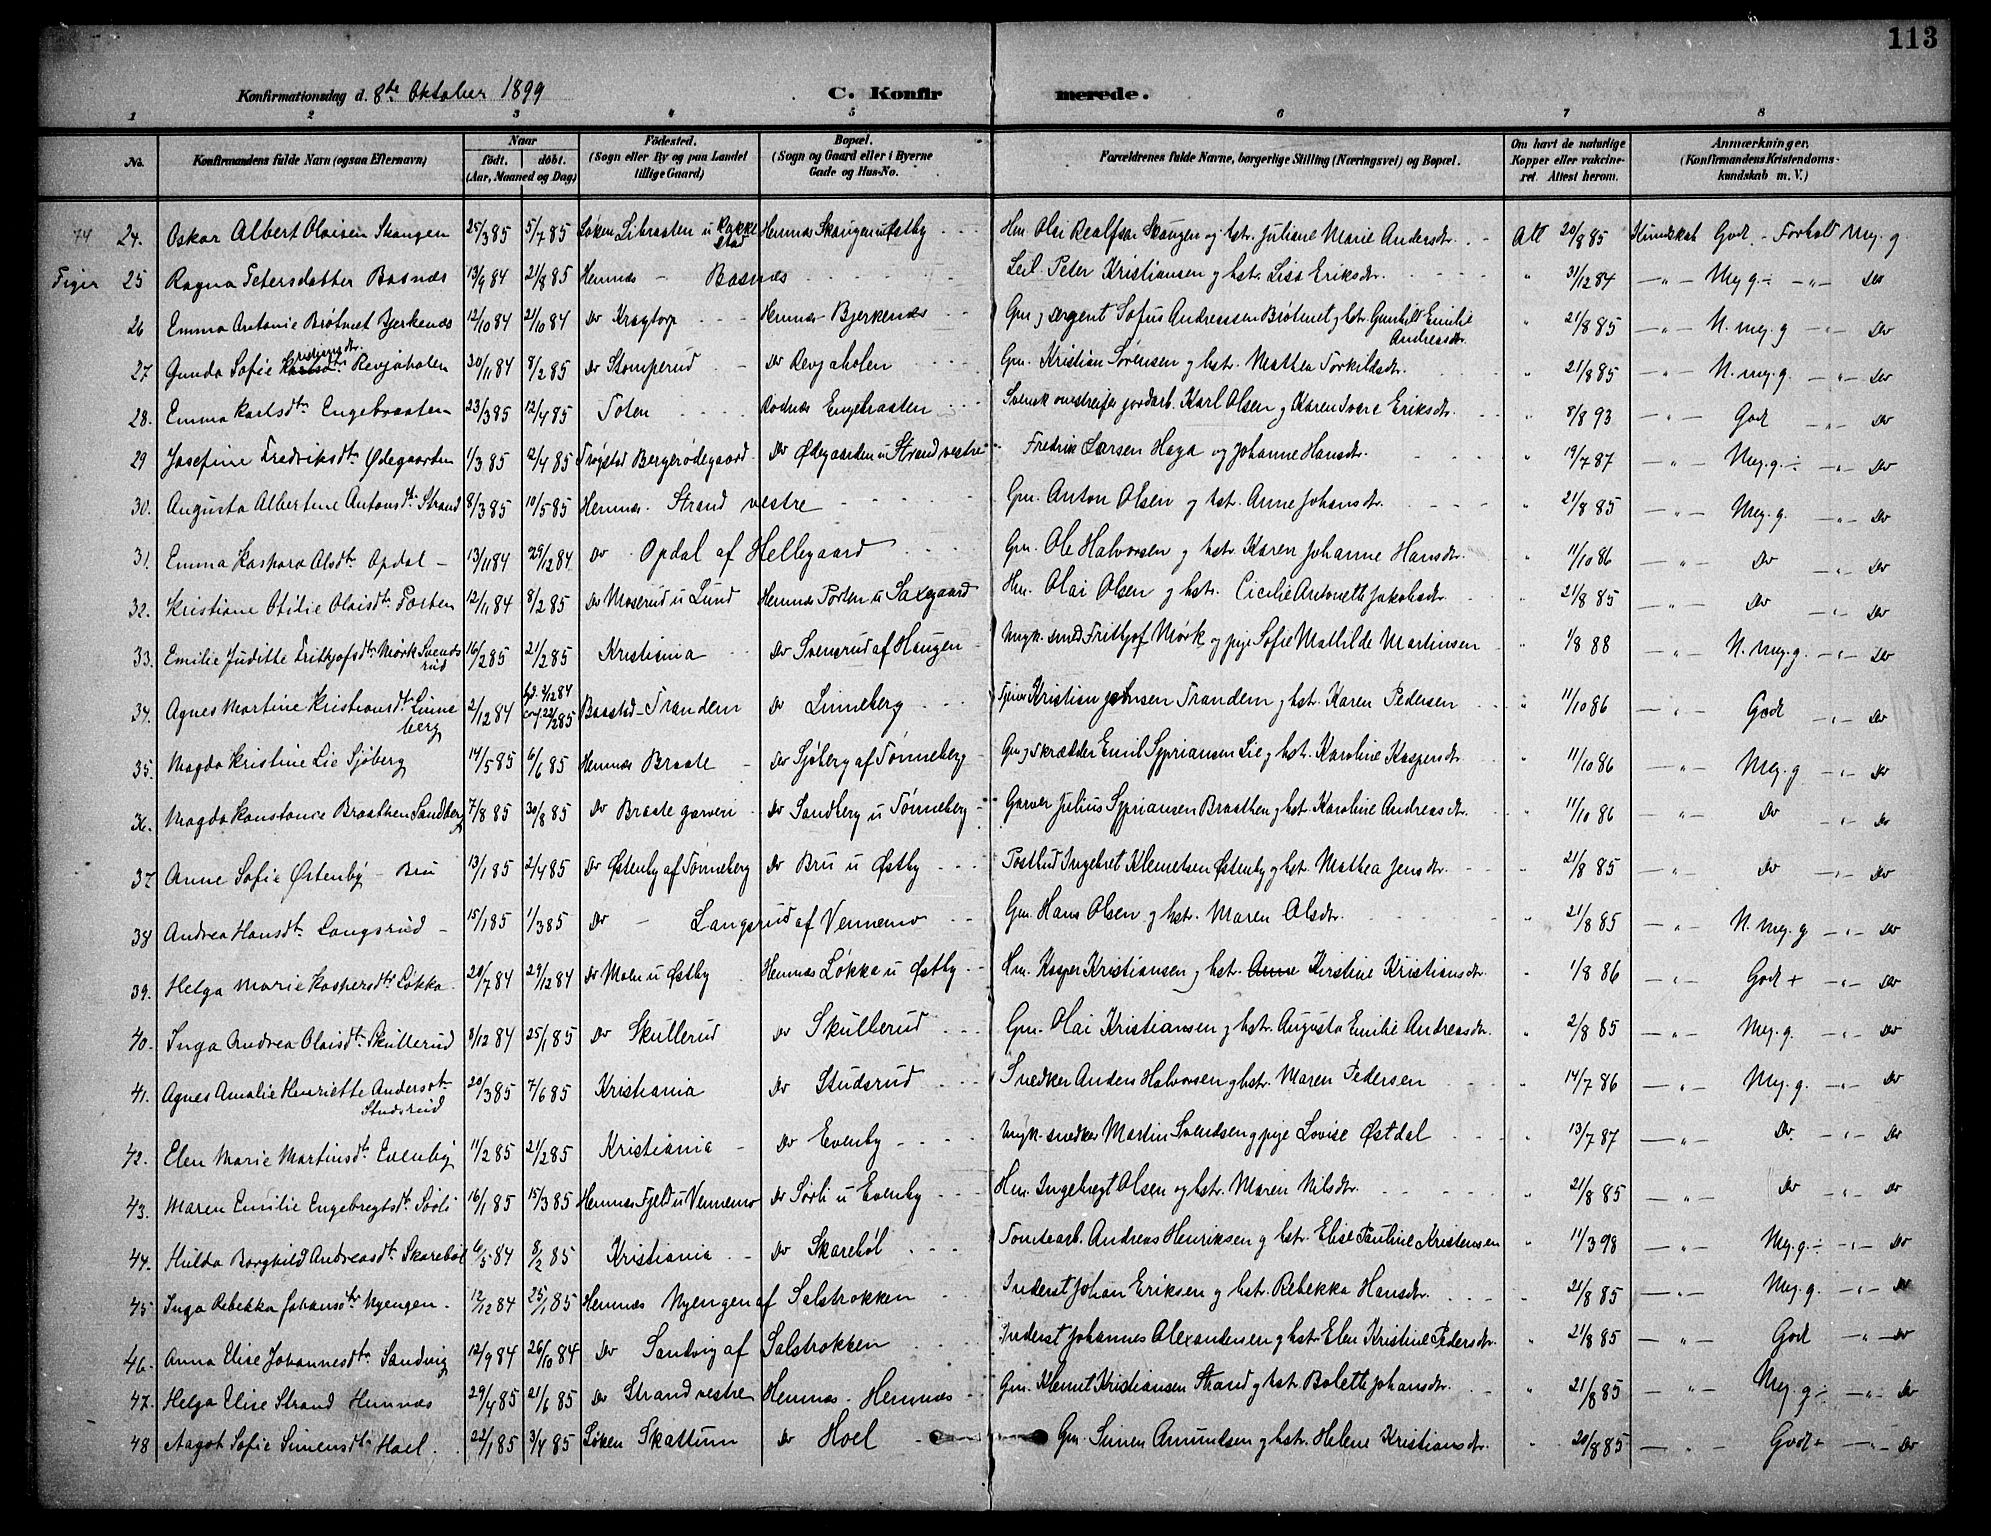 113
Konfirmationsdag d. 8de Oktober 1899 C. Konfirmerede.
1 2 3 4 5 6 7 8
No. Konfirmandens fulde Navn (ogsaa Efternavn) Naar födt. döbt. (Aar, Maaned og Dag) Födested. (Sogn eller By og paa Landet tillige Gaard) Bopæl. (Sogn og Gaard eller i Byerne Gade og Hus-No. Forældrenes fulde Navne, borgerlige Stilling (Næringsvei) og Bopæl. Om havt de naturlige Kopper eller vakcineret. Attest herom. Anmærkninger. (Konfirmandens Kristendomskundskab m. V.)
24. Oskar Albert Olaisen Skangen 25/3 85 5/7 85 Løken Libraaten u Rakkestad Hemnæs Skangen u Østby Hm. Olai Realfsen Skangen og hstr. Juliane Marie Andersdtr. Att 20/8 85 Kundskab Godt - Forhold Meg. g
Piger 25 Ragna Petersdatter Basnæs 13/9 84 21/8 85 Hemnæs - Basnæs Leil. Peter Kristiansen g hstr. Lisa Eriksdtr. " 31/12 84 -"- Meg g ÷ -"- Do
26 Emma Antonie Brøtmet Bjerkenæs 12/10 84 21/10 84 Do Kragtorp Hemnæs Bjerkenæs Gm. g Sergent Sofus Andreassen Brøtmet g hstr. Gunhild Emilie Andreasdtr. " 21/8 85 -"- N. meg. g -"- Do
27 Gunda Sofie Kristiansdtr. Revjaholen 30/11 84 8/2 85 Do Stomperud Do Revjaholen Gm. Kristian Sørensen g hstr. Mathea Torkildsdtr. " 21/8 85 -"- N. meg. g. -"- Do
28. Emma Karlsdtr Engebraaten 23/3 85 12/4 85 Toten Rødnæs Engebraaten Svensk omstreifer jordarb. Karl Olsen g Karen Tvere Eriksdtr. " 8/8 93 -"- Godt -"- Do
29 Josefine Fredriksdtr Ødegaarden 1/3 85 12/4 85 Trøgstad Bergerødegaard Do Ødegaarden u Strand vestre Fredrik Larsen Haga og Johanne Hansdtr. " 19/7 87 -"- Meg. g. ÷ -"- Do
30. Augusta Albertine Antonsdtr Strand 8/3 85 10/5 85 Hemnæs. Strand vestre Gm. Anton Olsen g hst. Anne Johansdtr. " 21/8 85 -"- Meg. g. -"- Do
31. Emma Kaspara Olsdtr Opdal 13/11 84 29/12 84 Do Opdal af Hellegaard Gm. Ole Halvorsen g hstr. Karen Johanne Hansdtr. " 11/10 86 -"- Do -"- Do
32. Kristiane Otilie Olaisdtr Porten 12/11 84 8/2 85 Do Moserud u Lund Hemnæs Porten u Saxegaard Hm. Olai Olsen g hstr. Cicilie Antonette Jakobsdtr. " 21/8 85 -"- Do -"- Do
33. Emilie Juditte Fritjofsdtr Mørk Svendsrud 16/2 85 21/2 85 Kristiania Do Svensrud af Haugen Ungk. smed Fritjof Mørk og pige Sofie Mathilde Martinsen 1/8 88 -"- N. Meg. g. -"- Do
34. Agnes Martine Kristiansdtr Linneberg 2/12 84 hd. 2/12 84 conf. 22/2 85 Baastad - Trandem Do Linneberg Kristian Jensen Trandem g hstr. Karen Pedersen " 11/10 86 -"- Godt -"- Do
35. Magda Kristine Lie Sjøberg 14/5 85 6/6 85 Hemnæs Braate Do Sjøberg af Tønneberg Gm g Skrædder Emil Sypriansen Lie g hstr. Karoline Kaspersdtr " 11/10 86 -"- Meg. g -"- Do
36. Magda Konstanse Braathen Sandberg 7/8 85 30/8 85 Do Braate garveri Do Sandberg u Tønneberg Garver Julius Sypriansen Braathen g hstr. Karoline Andreasdtr. " 11/10 86 -"- Do -"- Do
37 Anne Sofie Østenby - Bru 13/1 85 2/4 85 Do Østenby af Tønneberg Do Bru u Østby Postbud Ingebret Klemetsen Østenby g hstr. Mathea Jensdtr. " 21/8 85 -"- Do -"- Do
38 Andrea Hansdtr Langsrud 15/1 85 1/3 85 Do - Langsrud af Vennemo Gm. Hans Olsen g hstr. Maren Olsdtr. " 21/8 85 -"- N. meg. g -"- Do
39. Helga Marie Kaspersdtr Løkka 20/7 84 29/12 84 Do Moen u Østby Hemnæs Løkka u Østby Hm. Kasper Kristiansen g hstr. Anne Kirstine Kristiansdtr. " 1/8 86 -"- Godt + -"- Do
40. Inga Andrea Olaisdtr Skullerud 8/12 84 25/1 85 Do Skullerud Do Skullerud Gm. Olai Kristiansen g hstr. Augusta Emilie Andreasdtr. " 2/8 85 -"- Meg. g. -"- Do
41. Agnes Amalie Henriette Andersdtr Studsrud 20/3 85 7/6 85 Kristiania Do Studsrud Snedker Anders Halvorsen g hstr. Maren Pedersen " 14/7 86 -"- Meg. g. -"- Do
42. Elen Marie Martinsdtr Evenby 11/2 85 21/2 85 Kristiania Do Evenby Ungk. snedker Martin Svendsen g pige Lovise Østdal " 13/7 87 -"- Do. -"- Do
43. Maren Emilie Engebregtsdtr Sørli 16/1 85 15/3 85 Hemnæs Fjeld u Vennemo Do Sørli u Evenby Hm. Ingebregt Olsen og hstr. Maren Nilsdtr. " 21/8 85 -"- Do -"- Do
44. Hulda Borghild Andreasdtr Skarebøl 6/5 84 8/2 85 Kristiania Do Skarebøl Tomtearb. Andreas Henriksen g hstr. Elise Pauline Kristensen " 11/3 98 -"- Meg. g. ÷ -"- Do
45 Inga Rebekka Johansdtr Nyengen. 12/12 84 25/1 85 Hemnæs Nyengen af Salstrokken Inderst Johan Eriksen g hstr. Rebekka Hansdtr. " 21/8 85 -"- Meg. g. -"- Do
46. Anna Elise Johannesdtr Sandvig 12/9 84 26/10 84 Do Sandvig af Salstrokken Inderst Johannes Alexandersen g hstr Elen Kristine Pedersdtr. " 21/8 85 -"- Godt -"- Do
47. Helga Elise Strand Hemnæs 29/4 85 21/6 85 Do Strand vestre Hemnæs. Hemnæs Gm. Klemet Kristiansen Strand g hstr. Bolette Johansdtr. " 21/8 85 -"- Meg. g ÷ -"- Do
48 Aagot Sofie Simensdtr Hoel. 22/1 85 3/4 85 Løken Skattum Do Hoel Gm. Simen Amundsen g hstr. Helene Kristiansdtr. " 20/8 85 -"- Godt + -"- Do